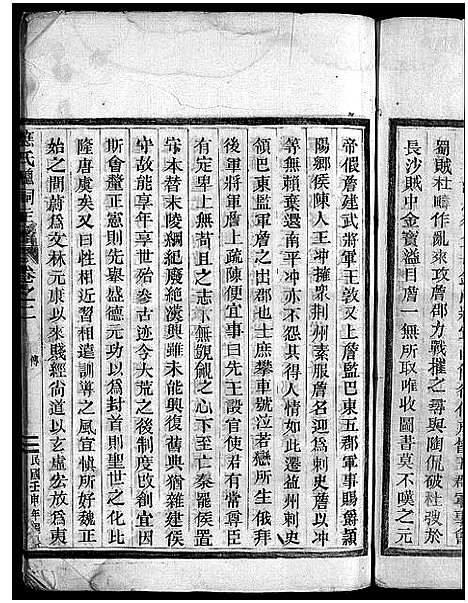 蜀賊杜疇作亂來攻詹郡力戰摧之尋與陶侃破杜弢於
長沙賊中金寶溢目詹一無所取唯收圖書莫不嘆之元
帝假詹建武將軍王敦又上詹監巴東五郡軍事賜爵潁
陽鄉侯陳人王冲擁衆荆州素服詹名迎爲刺史詹以冲
等無賴棄還南平冲亦不怨其得人情如此遷益州刺史
領巴東監軍詹之出郡也士庶攀車號泣若戀所生俄拜
後軍將軍詹上疏陳便宜事曰先王設官使君有常尊臣
有定卑上無苟且之志下無覬覦之心下至亡秦罷侯置
守本替末陵綱紀廢絕漢興雖未能興復舊典猶雜建侯
守故能享年享世殆參古迹今大荒之後制度改創宜因
斯會釐正憲則先舉盛德元功以爲封首則聖世之化比
隆唐虞矣又曰性相近習相遠訓導之風宜愼所好魏正
始之間蔚爲文林元康以來賤經尚道以玄虛宏放爲東
卷之二
傳
民國壬申年